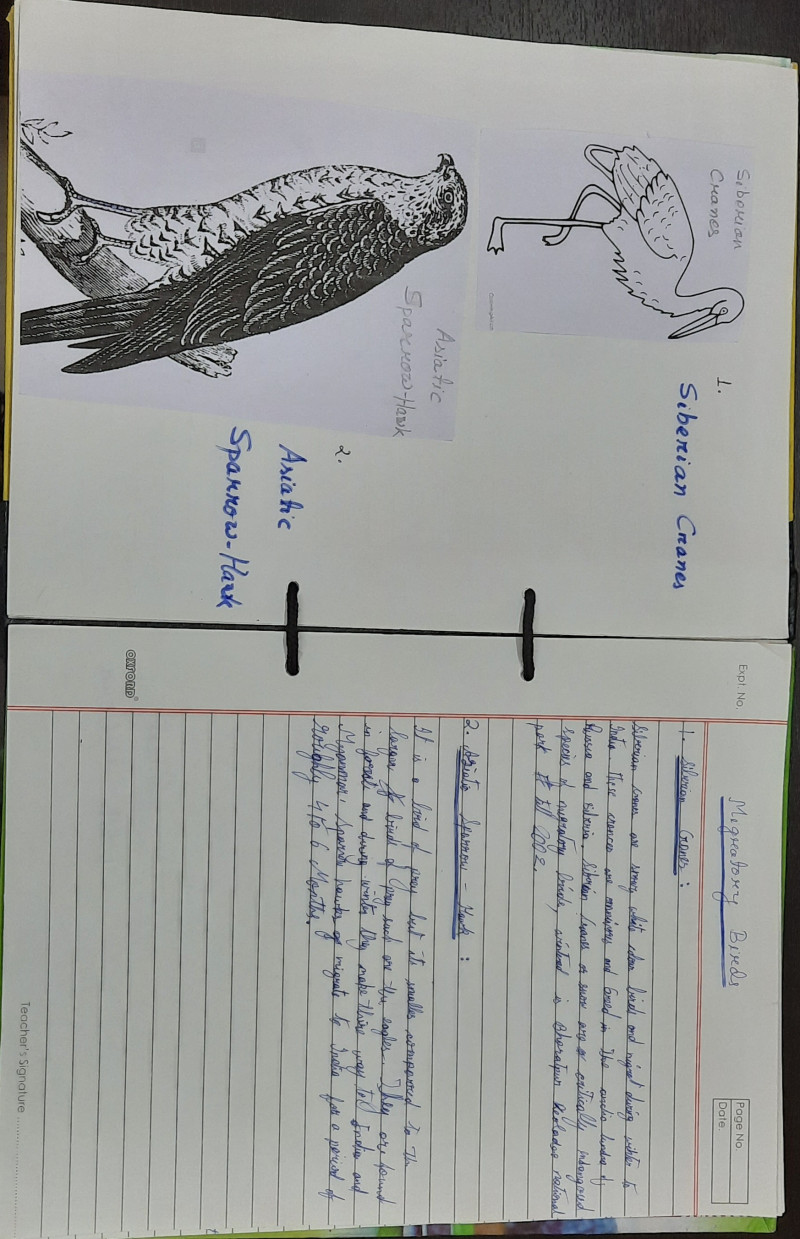 Siberian
Cranes
1.
Siberian Cranes
Asiatic
Sparrow-Hawk
2.
Asiatic
Sparrow-Hawk
OXFORD®
Expt. No.
Page No.
Date.
Migratory Birds
1. Siberian Cranes :
Siberian Cranes are snowy white colour bird and migrat during winter to
India. These crances are omnivores and breed in the arctic tundra of
Russia and siberia. Siberian Cranes or snow are a critically indangered
species of migratory birds, wintred in Bharatpur Keoladeo national
park till 2002.
2. Asiatic Sparrow - Hawk :
It is a bird of prey but its smaller comparred to the
larger bird of prey such are the eagles. They are found
in forests and during winter they make there way to India and
Myanmar. Sparrow hawks migrate to India for a period of
roughly 4 to 6 Months.
Teacher's Signature